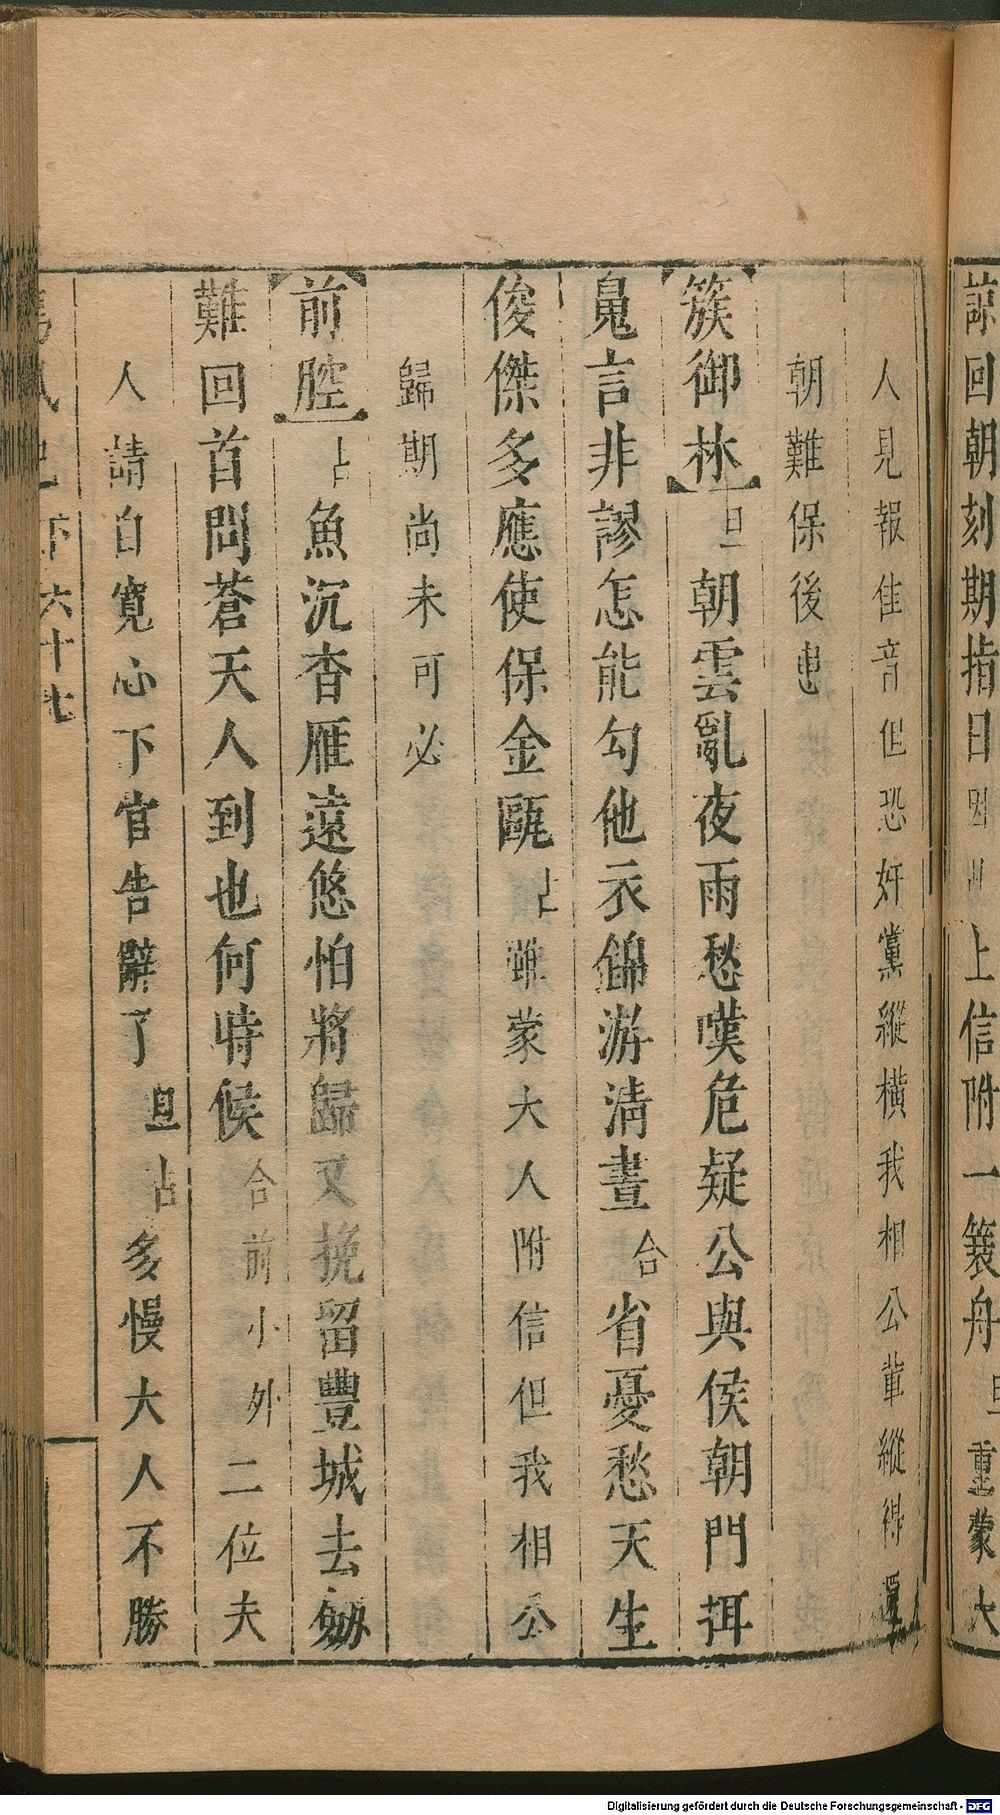 諒回朝刻期指日 上信附一襄舟旦重蒙大
人見報佳音但恐奸黨縱横我相公車縱得還
朝難保後患
簇御林旦朝雲亂夜雨愁嘆危疑公與侯朝門弭
鬼言非謬怎能勾他衣錦游清晝合省憂愁天生
俊傑多應使保金甌占雖蒙大人附信但我相公
歸期尚未可必
前腔占魚沉杳雁遠悠怕將歸又挽留豐城去劒
難回首問蒼天人到也何時候合前小外二位夫
人請自寬心下官告辭了旦占多慢大人不勝
下 六十七
Digitalisierung gefördert durch die Deutsche Forschungsgemeinschaft - DFG